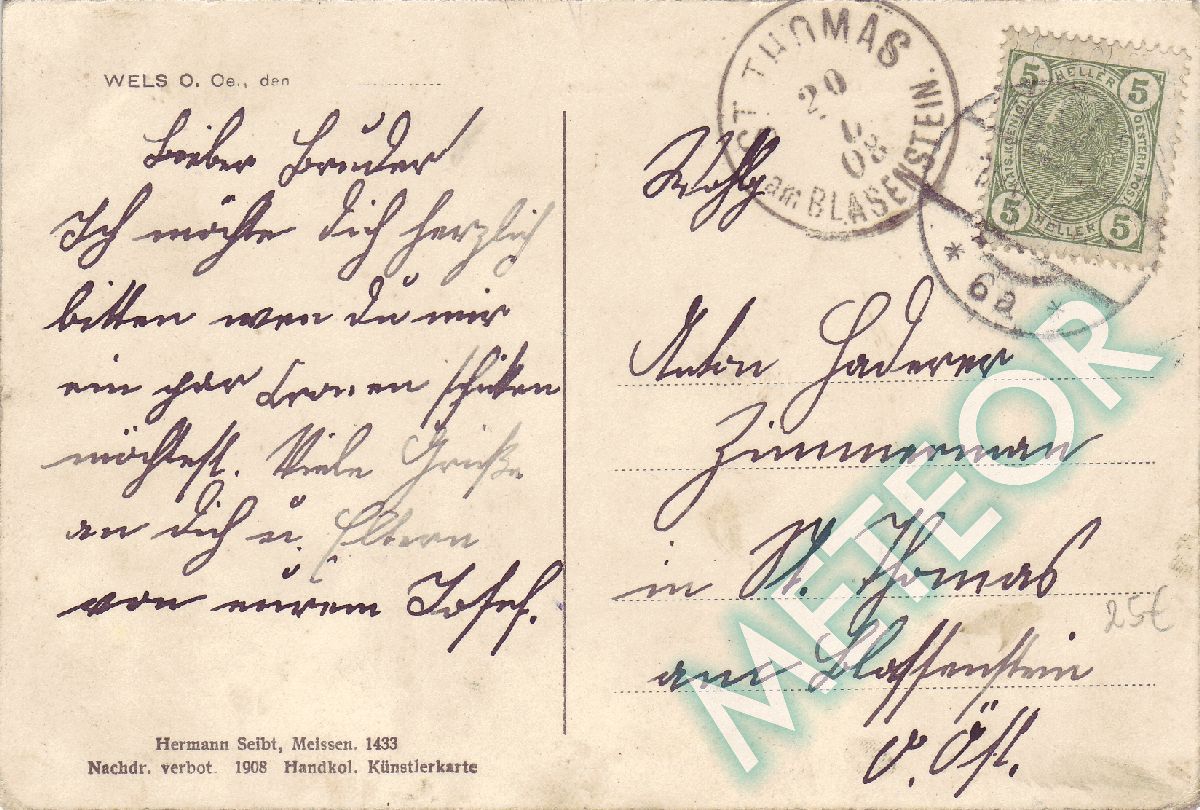 WELS O. Oe., den
Lieber Bruder
Ich möchte dich herzlich
bitten wen du mir
ein par Cronen schiken
möchtest. Viele Grüße
an dich u. Eltern
von eurem Josef.
Hermann Seibt, Meissen. 1433
Nachdr. verbot. 1908 Handkol. Künstlerkarte
ST THOMAS
20
08
am BLASENSTEIN
5 HELLER 5
5 HELLER 5
* 6a *
Wohlg
Anton Haderer
Zimmerman
in St. Thomas
am Blassenstein
O. Öst.
25€
METEOR